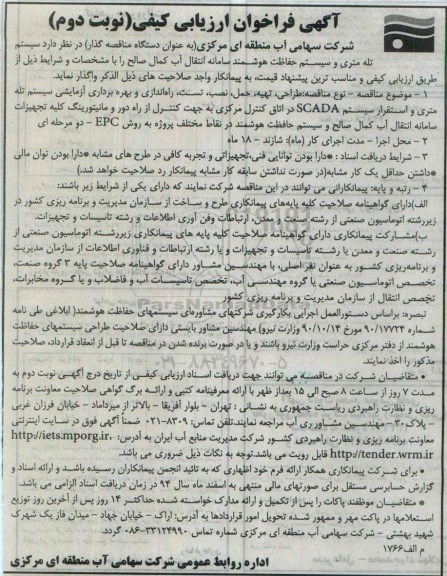 آگهی فراخوان ارزیابی کیفی(نوبت دوم)
شرکت سهامی آب منطقه ای مرکزی(به عنوان دستگاه مناقصه گذار) در نظر دارد سیستم
تله متری و سیستم حفاظت هوشمند سامانه انتقال آب کمال صالح را با مشخصات و شرایط ذیل از
طریق ارزیابی کیفی و مناسب ترین پیشنهاد قیمت، به پیمانکار واجد صلاحیت های ذیل الذکر واگذار نماید.
۱ – موضوع مناقصه – نوع مناقصه:طراحی، تهیه، حمل، نصب، تست، راه‌اندازی و بهره برداری آزمایشی سیستم تله
متری و استقرار سیستم SCADA در اتاق کنترل مرکزی به جهت کنترل از راه دور و مانیتورینگ کلیه تجهیزات
سامانه انتقال آب کمال صالح و سیستم حفاظت هوشمند در نقاط مختلف پروژه به روش EPC – دو مرحله ای
۲ – محل اجرا – مدت اجرای کار (ماه): شازند – ۱۸ ماه
۳ – شرایط دریافت اسناد : *دارا بودن توانایی فنی،تجهیزاتی و تجربه کافی در طرح های مشابه *دارا بودن توان مالی
*داشتن حداقل یک کار مشابه(در صورت نداشتن سابقه کار مشابه پیمانکار رد صلاحیت خواهد شد)
۴ – رتبه و پایه: پیمانکارانی می توانند در این مناقصه شرکت نمایند که دارای یکی از شرایط زیر باشند:
الف)دارای گواهینامه صلاحیت کلیه پایه‌های پیمانکاری طرح و ساخت از سازمان مدیریت و برنامه ریزی کشور در
زیررشته اتوماسیون صنعتی از رشته صنعت و معدن، ارتباطات وفن آوری اطلاعات و رشته تاسیسات و تجهیزات.
ب)مشارکت پیمانکاری دارای گواهینامه صلاحیت کلیه پایه های پیمانکاری زیررشته اتوماسیون صنعتی از
رشته صنعت و معدن یا رشته تأسیسات و تجهیزات و یا رشته ارتباطات و فناوری اطلاعات از سازمان مدیریت
و برنامه‌ریزی کشور به عنوان نفر اصلی، با مهندسین مشاور دارای گواهینامه صلاحیت پایه ۳ گروه صنعت،
تخصص اتوماسیون صنعتی یا گروه مهندسی آب، تخصص تاسیسات آب و فاضلاب و یا گروه مخابرات،
تخصص انتقال از سازمان مدیریت و برنامه ریزی کشور
تبصره: براساس دستورالعمل اجرایی بکارگیری شرکتهای مشاوره‌ای سیستمهای حفاظت هوشمند( ابلاغی طی نامه
شماره ۹۰/۱۷۷۲۴ مورخ ۹۰/۱۰/۱۴ وزارت نیرو) مهندسین مشاور بایستی دارای صلاحیت طراحی سیستمهای حفاظت
هوشمند از دفتر مرکزی حراست وزارت نیرو باشند و یا در صورت برنده شدن در مناقصه تا قبل از انعقاد قرارداد، صلاحیت
مذکور را اخذ نمایند.
• متقاضیان شرکت در مناقصه می توانند جهت دریافت اسناد ارزیابی کیفی از تاریخ درج آگهی نوبت دوم به
مدت ۷ روز از ساعت ۸ صبح الی ۱۵ بعداز ظهر با ارائه معرفینامه کتبی و ارائه برگ گواهی صلاحیت معاونت برنامه
ریزی و نظارت راهبردی ریاست جمهوری به نشانی : تهران – بلوار آفریقا – بالاتر از میرداماد – خیابان فرزان غربی
– پلاک۳۰ – مهندسین مشاور ری آب مراجعه نمایند.تلفن تماس: ۸۳۰۹-۰۲۱ ضمناً آگهی فوق در سایت اینترنتی
معاونت برنامه ریزی و نظارت راهبردی کشور شرکت مدیریت منابع آب ایران به آدرس: http://iets.mporg.ir،
http://tender.wrm.ir قابل رویت می باشد.توجه به نکات ذیل ضروری می باشد.
• برای شرکت پیمانکاری همکار ارائه فرم خود اظهاری که به تائید انجمن پیمانکاران رسیده باشد و ارائه اسناد و
گزارش حسابرسی مستقل برای صورتهای مالی منتهی به اسفند ماه سال ۹۴ در زمان دریافت اسناد الزامی می باشد.
• متقاضیان موظفند پاکات را پس از تکمیل و ارائه مدارک خواسته شده حداکثر ۱۴ روز پس از آخرین روز توزیع
استعلامها در پاکت مهر و ممهور شده تحویل امور قراردادها به آدرس: اراک – خیابان جهاد – میدان فاز یک شهرک
شهید بهشتی – شرکت سهامی آب منطقه ای مرکزی شماره تماس ۳۳۱۲۴۹۹۰-۰۸۶ گردد.
م الف۱۷۶۶
اداره روابط عمومی شرکت سهامی آب منطقه ای مرکزی